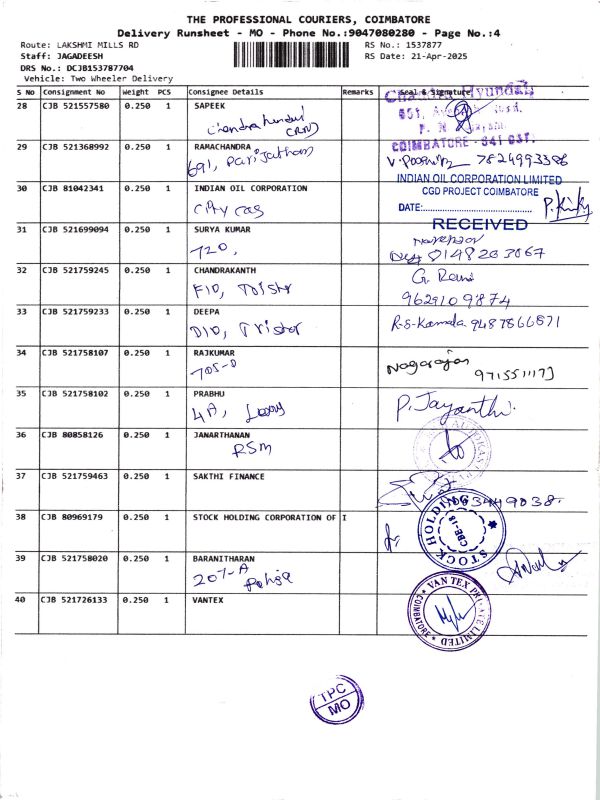 THE PROFESSIONAL COURIERS, COIMBATORE
Delivery Runsheet - MO - Phone No.:9047080280 - Page No.:4
Route: LAKSHMI MILLS RD
Staff: JAGADEESH
DRS No.: DCJB153787704
Vehicle: Two Wheeler Delivery
RS No.: 1537877
RS Date: 21-Apr-2025
S No Consignment No Weight PCS Consignee Details Remarks Seal & Signature
28 CJB 521557580 0.250 1 SAPEEK
29 CJB 521368992 0.250 1 RAMACHANDRA
691, Parijatham
7824993386
COIMBATORE - 641 037.
30 CJB 81042341 0.250 1 INDIAN OIL CORPORATION
City Gas
INDIAN OIL CORPORATION LIMITED
CGD PROJECT COIMBATORE
DATE:
RECEIVED
31 CJB 521699094 0.250 1 SURYA KUMAR
720,
32 CJB 521759245 0.250 1 CHANDRAKANTH
F10, Tristar
9629109874
33 CJB 521759233 0.250 1 DEEPA
D10, Tristar
R-S-Kamala 9487866871
34 CJB 521758107 0.250 1 RAJKUMAR
705-D
Nagarajan
35 CJB 521758102 0.250 1 PRABHU
4A,
P. Jayanthi.
36 CJB 80858126 0.250 1 JANARTHANAN
RSM
37 CJB 521759463 0.250 1 SAKTHI FINANCE
38 CJB 80969179 0.250 1 STOCK HOLDING CORPORATION OF I
STOCK HOLDING
CBE-18
39 CJB 521758020 0.250 1 BARANITHARAN
207-A
40 CJB 521726133 0.250 1 VANTEX
VAN TEX PRIVATE LIMITED
COIMBATORE
TPC
MO